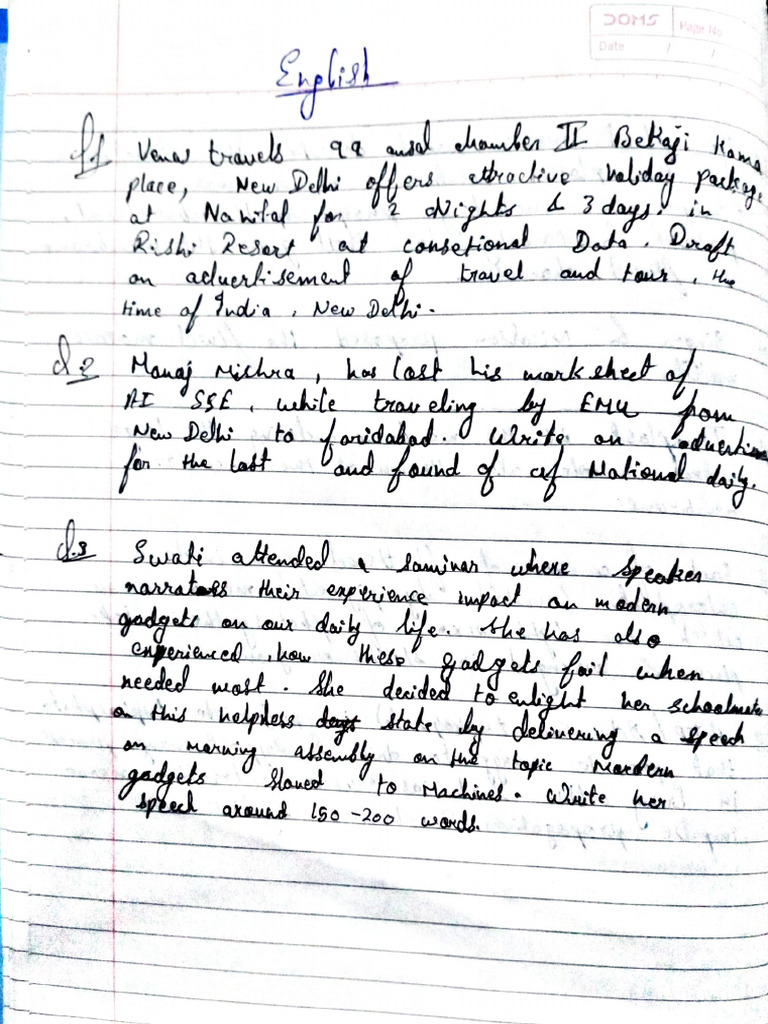 DOMS
Page No.
Date / /
English
Q.1 Venus travels, 98 ansal chamber II Bekaji Kama
place, New Delhi offers attractive holiday package
at Nanital for 2 Nights & 3 days. in
Rishi Resort at consetional Data. Draft
an advertisement of travel and tour, the
time of India, New Delhi.
Q.2 Manaj Mishra, has lost his marksheet of
AI SSE, while traveling by EMU from
New Delhi to faridabad. Write an
for the lost and found of National daily.
Q.3 Swati attended a saminar where speaker
narrates their experience impact on modern
gadgets on our daily life. She has also
experienced, how these gadgets fail when
needed most. She decided to enlight her schoolmate
on this helpless state by delivering a speech
on morning assembly on the topic Mordern
gadgets Slaved to Machines. Write her
speech around 150-200 words.